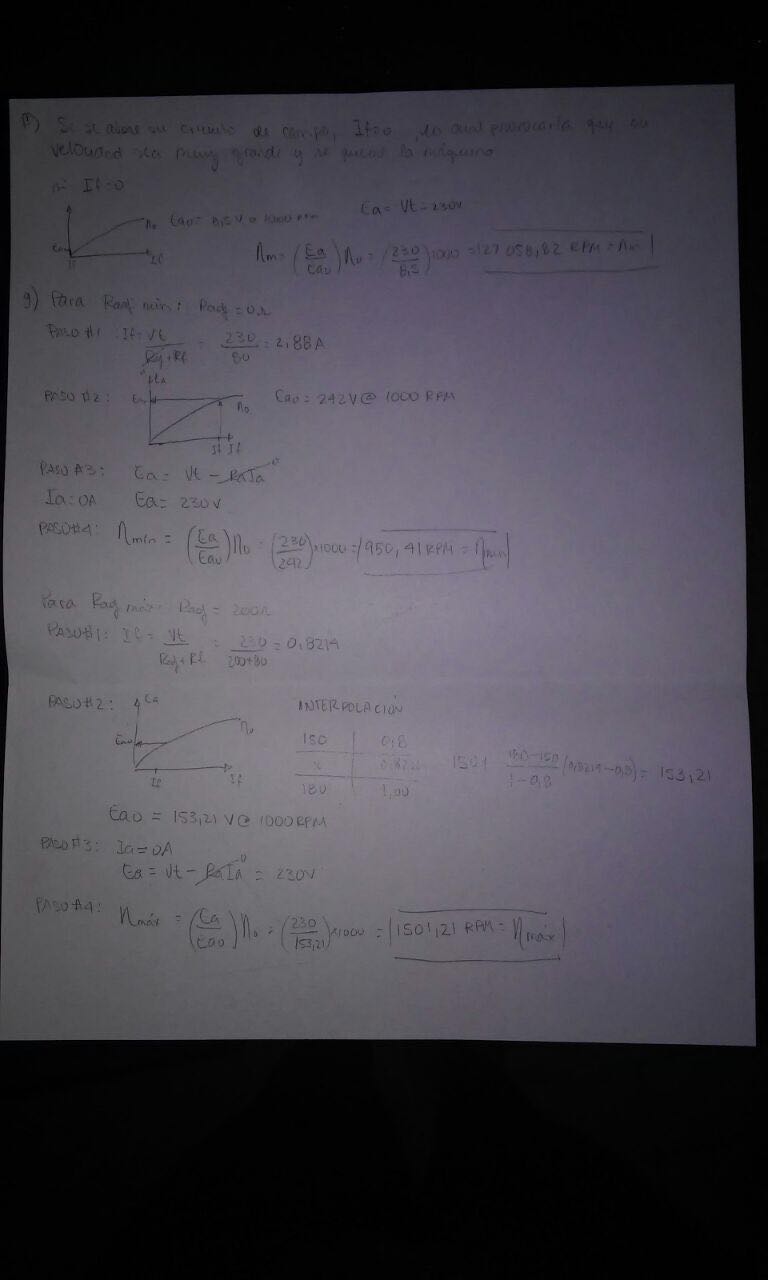 f) Si se abre su circuito de campo, If=0, lo cual provocaría que su
velocidad sea muy grande y se queme la máquina
si If=0
n₀ Ea₀= 8,5 V @ 1000 rpm Ea = Vt = 230V
Ea₀ If If
nm = (Ea/Ea₀) n₀ = (230/8,5) 1000 = 27 058,82 RPM = nm
g) Para Radj mín: Radj = 0Ω
PASO #1: If = Vt/(Radj+Rf) = 230/80 = 2,88A
PASO #2: n₀ If If Ea₀ = 242V @ 1000 RPM
PASO #3: Ea = Vt - RaIa 0
Ia = 0A Ea = 230V
PASO #4: nmín = (Ea/Ea₀) n₀ = (230/242) × 1000 = 950,41 RPM = nmín
Para Radj máx: Radj = 200Ω
PASO #1: If = Vt/(Radj+Rf) = 230/(200+80) = 0,821A
PASO #2: Ea INTERPOLACIÓN
Ea₀ n₀ If If
150 0,8
x
180 1,00
150+ (180-150)/(1-0,8) (0,8214-0,8) = 153,21
Ea₀ = 153,21 V @ 1000 RPM
PASO #3: Ia = 0A
Ea = Vt - RaIa 0 = 230V
PASO #4: nmáx = (Ea/Ea₀) n₀ = (230/153,21) × 1000 = 1501,21 RPM = nmáx